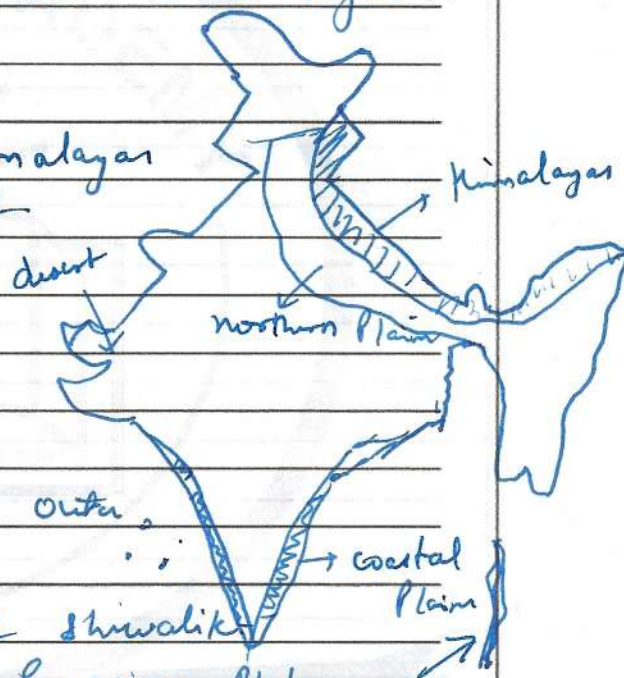 malayas
Himalayas
desert
Northern Plain
outer
coastal
Plain
Shiwalik